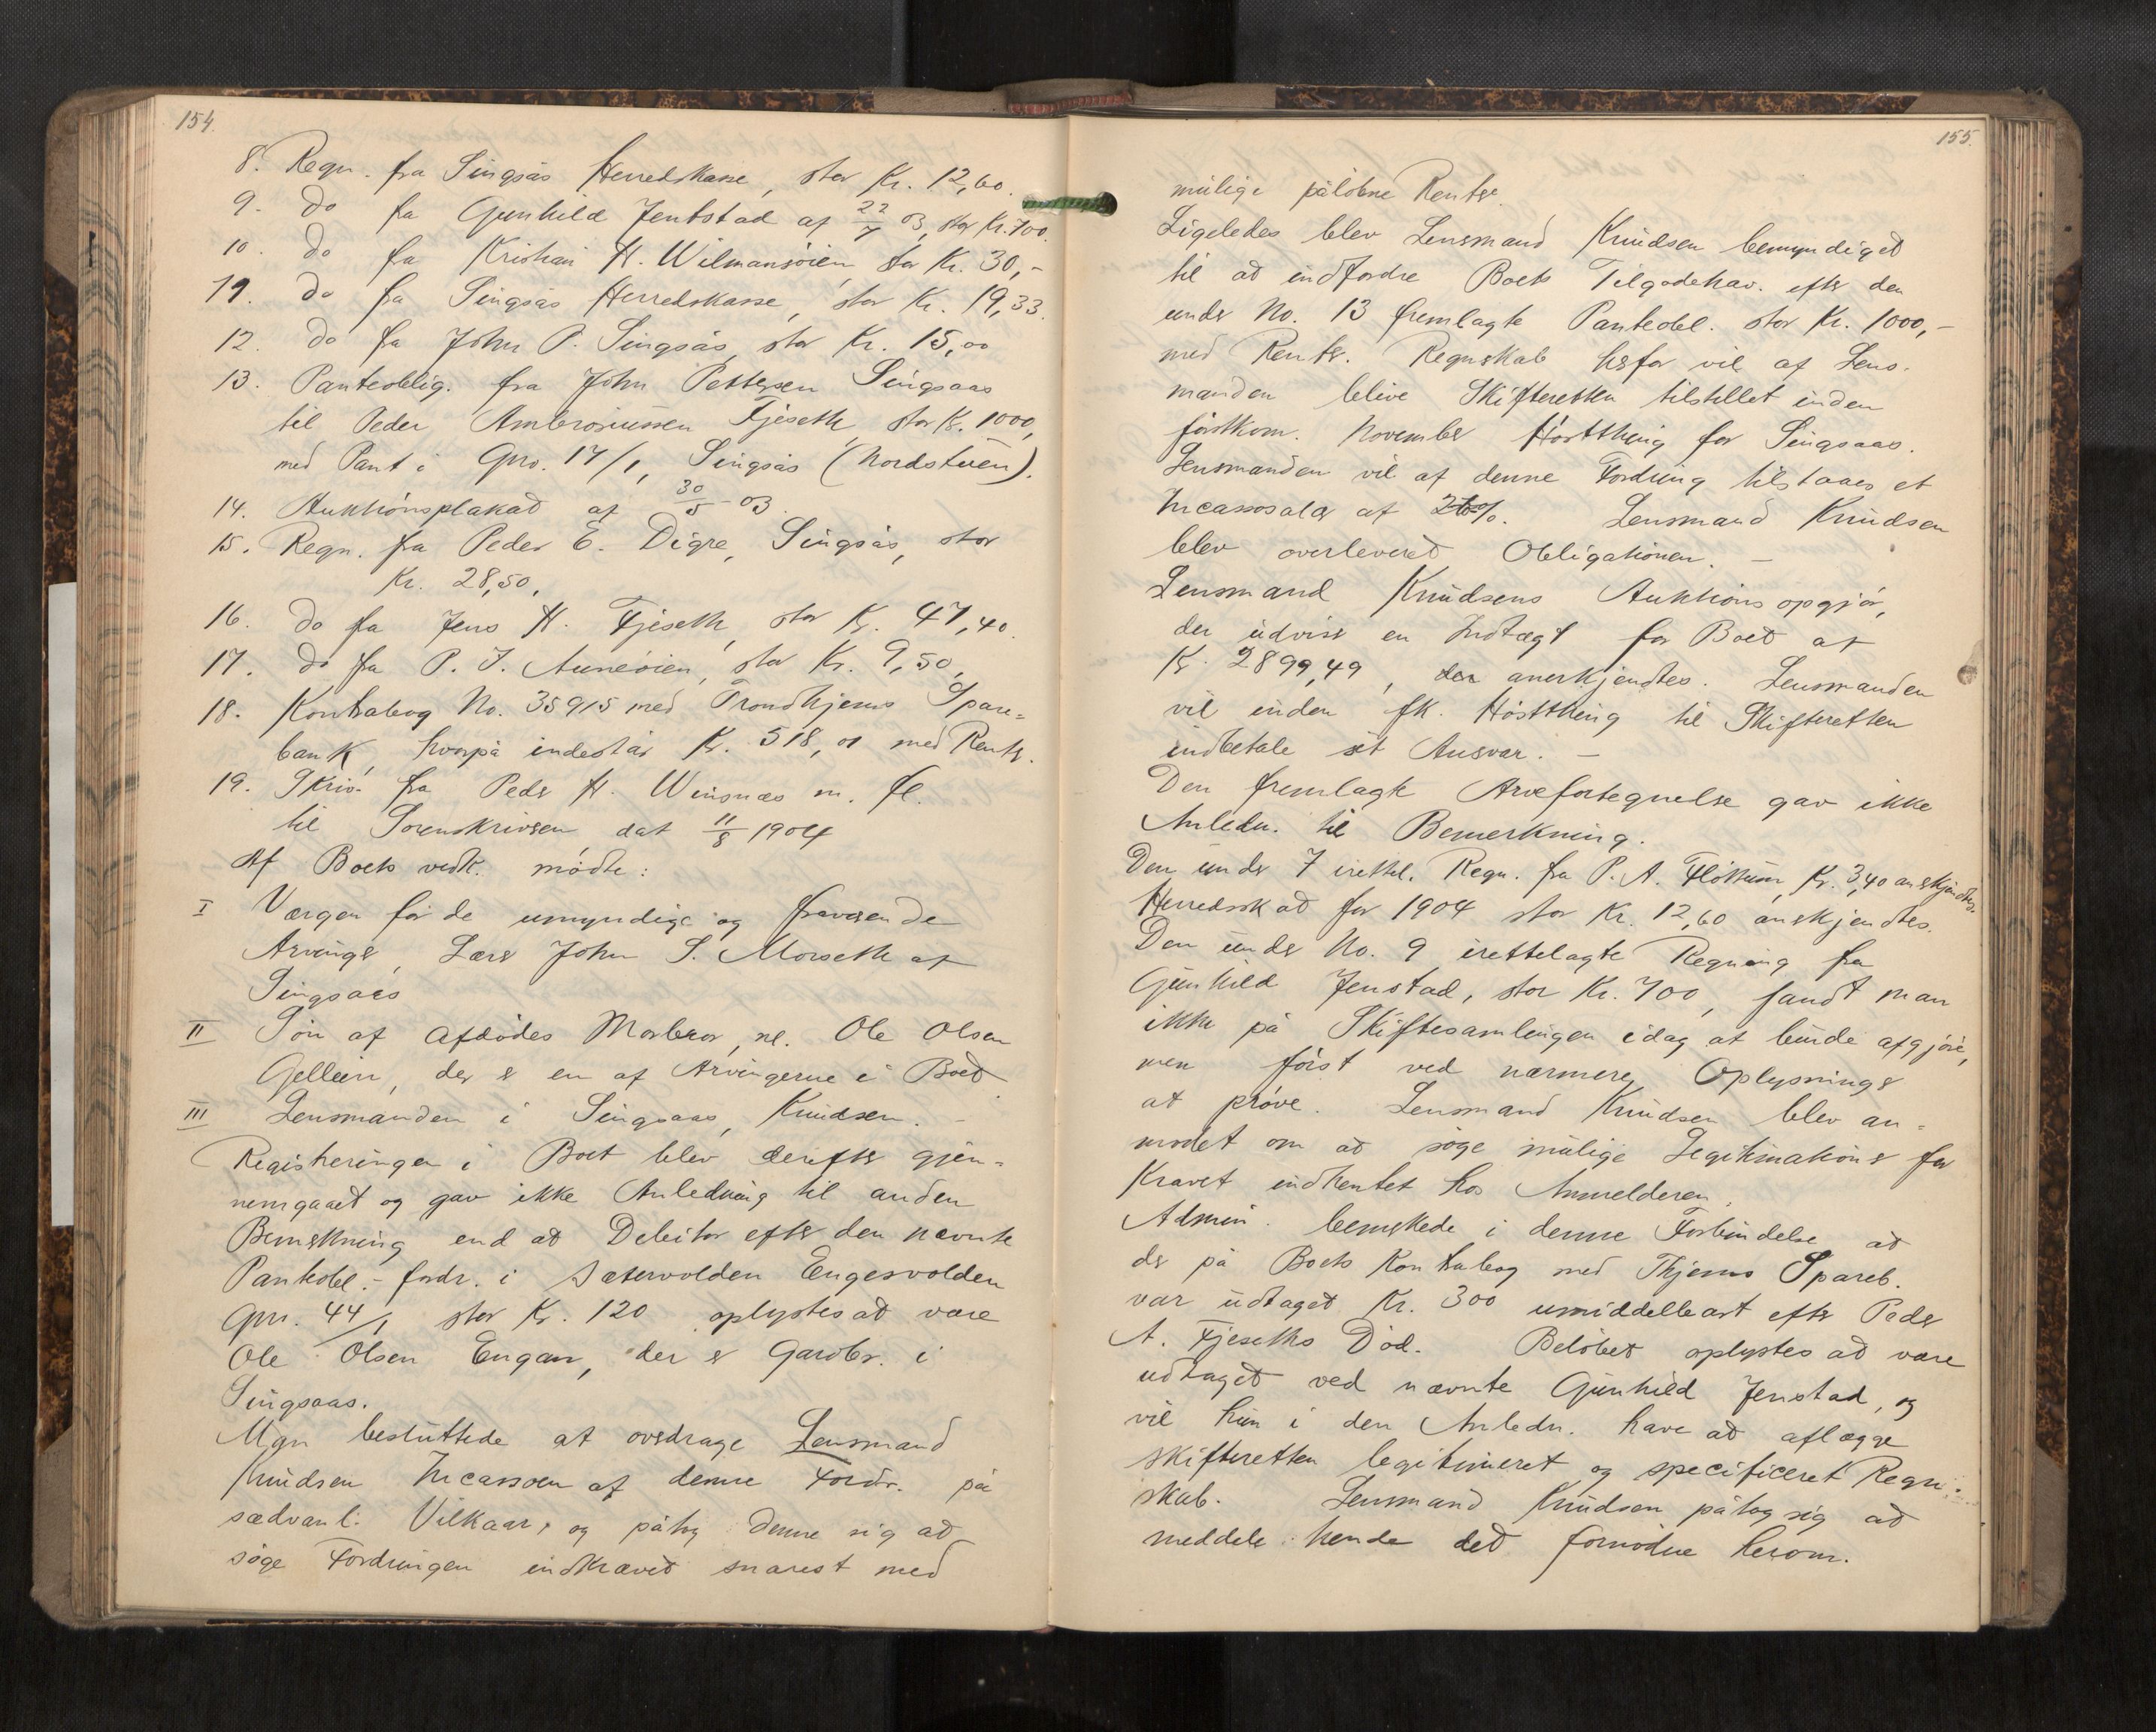 154.
8. Regn. fra Singsås Herredskasse, stor Kr. 12,60.
9. do fra Gunhild Jentstad af 22/7 03, stor Kr. 700.
10. do fra Kristian H. Wilmansöien stor Kr. 30,-
11. do fra Singsås Herredskasse, stor Kr. 19,33.
12. do fra John P. Singsås, stor Kr. 15,00
13. Panteoblig. fra John Pettersen Singsaas
til Peder Ambrosiussen Fjeseth, stor Kr. 1000,
med Pant i Gno. 17/1, Singsås (Nordstuen).
14. Auktionsplakad af 30/5 - 03.
15. Regn. fra Peder E. Digre, Singsås, stor
Kr. 28,50,
16. do fra Jens H. Fjeseth, stor Kr. 47,40.
17. do fra P. J. Auneöien, stor Kr. 9,50,
18. Kontrabog No. 35915 med Trondhjems Spare=
bank, hvorpå indestår Kr. 518,01 med Renter.
19. Skriv. fra Peder H. Winsnæs m. fl.
til Sorenskriveren dat 11/8 1904
Af Boets vedk. mödte:
I Værgen for de umyndige og fraværende
Arvinger, Lærer John S. Morseth af
Singsaas
II Sön af Afdödes Morbror, nl. Ole Olsen
Gellein, der er en af Arvingerne i Boet
III Lensmanden i Singsaas, Knudsen. -
Registreringen i Boet blev derefter gjen=
nemgaaet og gav ikke Anledning til anden
Bemerkning end at Debitor efter den nævnte
Panteobl.- fordr. i Sætervolden Engesvolden
Gnr. 44/1 stor Kr. 120 oplystes at være
Ole Olsen Engan, der er Gardbr. i
Singsaas.
Man besluttede at overdrage Lensmand
Knudsen Incassoen af denne Fordr. på
sædvanl. Vilkaar, og påtog denne sig at
söge Fordringen indkrævet snarest med
155.
mulige pålöbne Renter.
Ligeledes blev Lensmand Knudsen bemyndiget
til at indfordre Boets Tilgodehav. efter den
under No. 13 fremlagte Panteobl. stor Kr. 1000,-
med Renter. Regnskab herfor vil af Lens-
manden blive Skifteretten tilstillet inden
förstkom. November Höstthing for Singsaas.
Lensmanden vil af denne Fordring tilstaaes et
Incassosalær af 2%. Lensmand Knudsen
blev overleveret Obligationen. -
Lensmand Knudsens Auktionsopgjör,
der udviser en Indtægt for Boet af
Kr. 2899,49, der anerkjendtes. Lensmanden
vil inden fk. Höstthing til Skifteretten
indbetale sit Ansvar. -
Den fremlagte Arvefortegnelse gav ikke
Anledn. til Bemerkning.
Den under 7 irettel. Regn. fra P. A. Flöttum, Kr. 3,40 anerkjendtes.
Herredsskat for 1904 stor Kr. 12,60 anerkjendtes.
Den under No. 9 irettelagte Regning fra
Gunhild Jenstad, stor Kr. 700, fandt man
ikke på Skiftesamlingen idag at burde afgjöre,
men först ved nærmere Oplysninger
at pröve. Lensmand Knudsen blev an=
modet om at söge mulige Legitimationer for
Kravet indhentet hos Anmelderen.
Admin. bemerkede i denne Forbindelse at
der på Boets Kontrabog med Thjems Spareb.
var udtaget Kr. 300 umiddelbart efter Peder
A. Fjeseths Död. Belöbet oplystes at være
udtaget ved nævnte Gunhild Jenstad, og
vil hun i den Anledn. have at aflægge
skifteretten legitimeret og specificeret Regn-
skab. Lensmand Knudsen påtog sig at
meddele hende det fornödne herom.